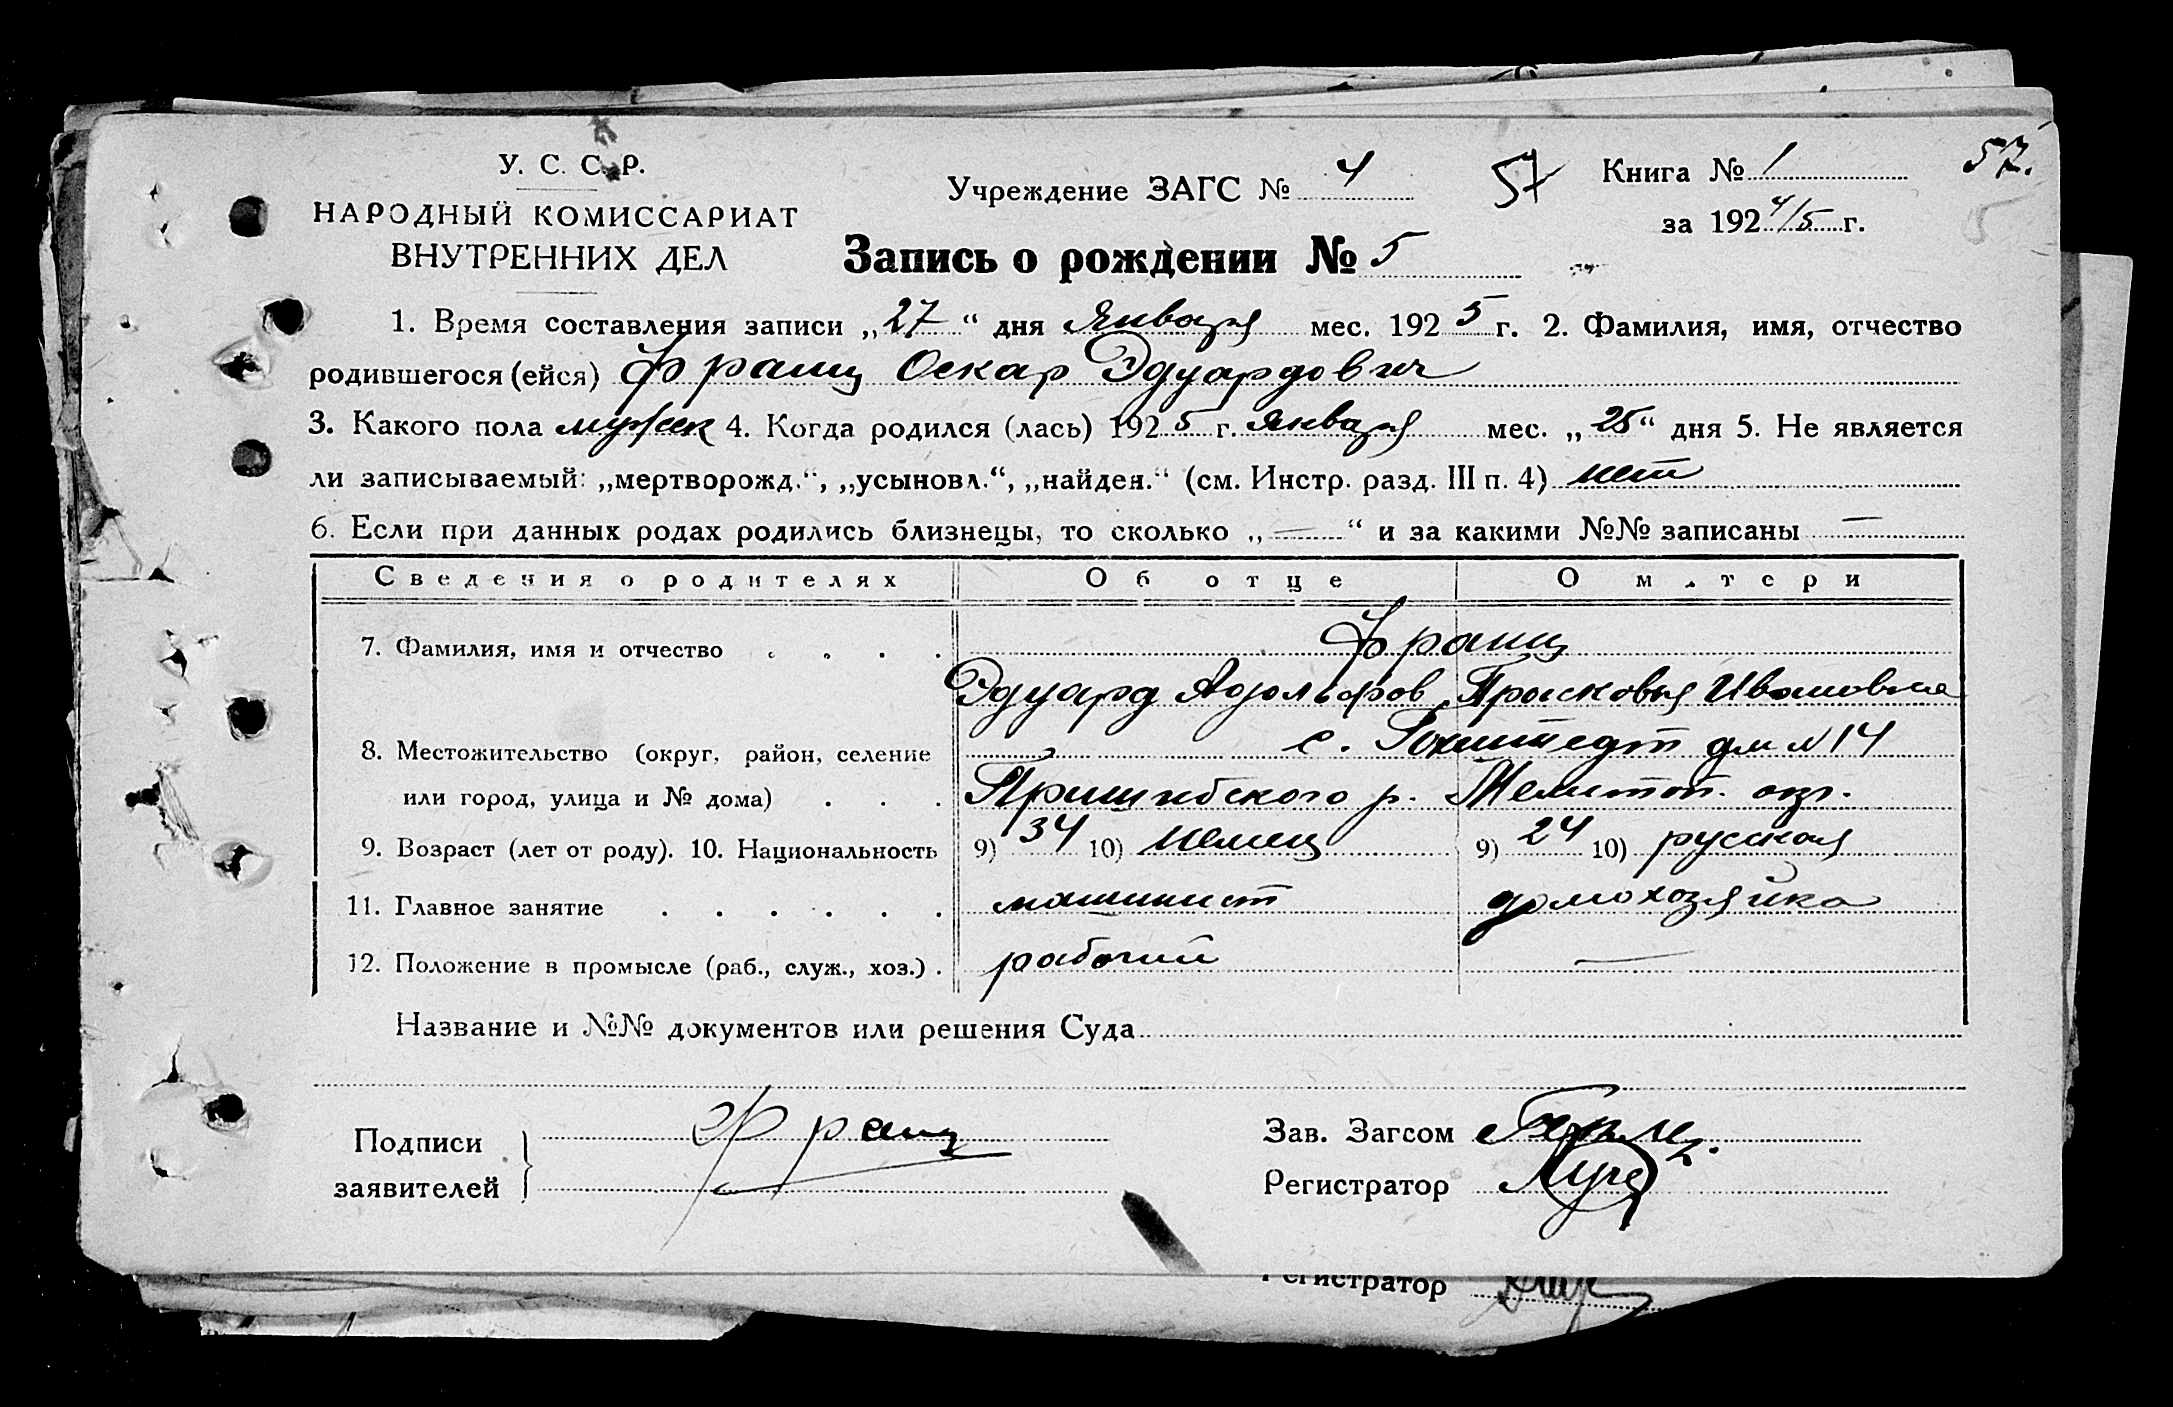 У. С. С. Р.
НАРОДНЫЙ КОМИССАРИАТ
ВНУТРЕННИХ ДЕЛ
Учреждение ЗАГС № 4
57
Книга № 1
за 1924/5 г.
57.
5
Запись о рождении № 5
1. Время составления записи „27“ дня Января мес. 1925 г. 2. Фамилия, имя, отчество
родившегося (ейся) Франц Оскар Эдуардович
3. Какого пола мужск 4. Когда родился (лась) 1925 г. Января мес. „25“ дня 5. Не является
ли записываемый: „мертворожд.“, „усыновл.“, „найден.“ (см. Инстр. разд. III п. 4) нет
6. Если при данных родах родились близнецы, то сколько „—“ и за какими №№ записаны —
Сведения о родителях Об отце О матери
7. Фамилия, имя и отчество . . . . Франц
Эдуард Адольфов Прасковья Ивановна
8. Местожительство (округ, район, селение с. Гохштедт дм №14
или город, улица и № дома) . . . Пришибского р. Мелитоп. окр.
9. Возраст (лет от роду). 10. Национальность 9) 34 10) немец 9) 24 10) русская
11. Главное занятие . . . . . . машинист домохозяйка
12. Положение в промысле (раб., служ., хоз.) . рабочий —
Название и №№ документов или решения Суда
Подписи
заявителей
Франц
Зав. Загсом
Регистратор
Регистратор